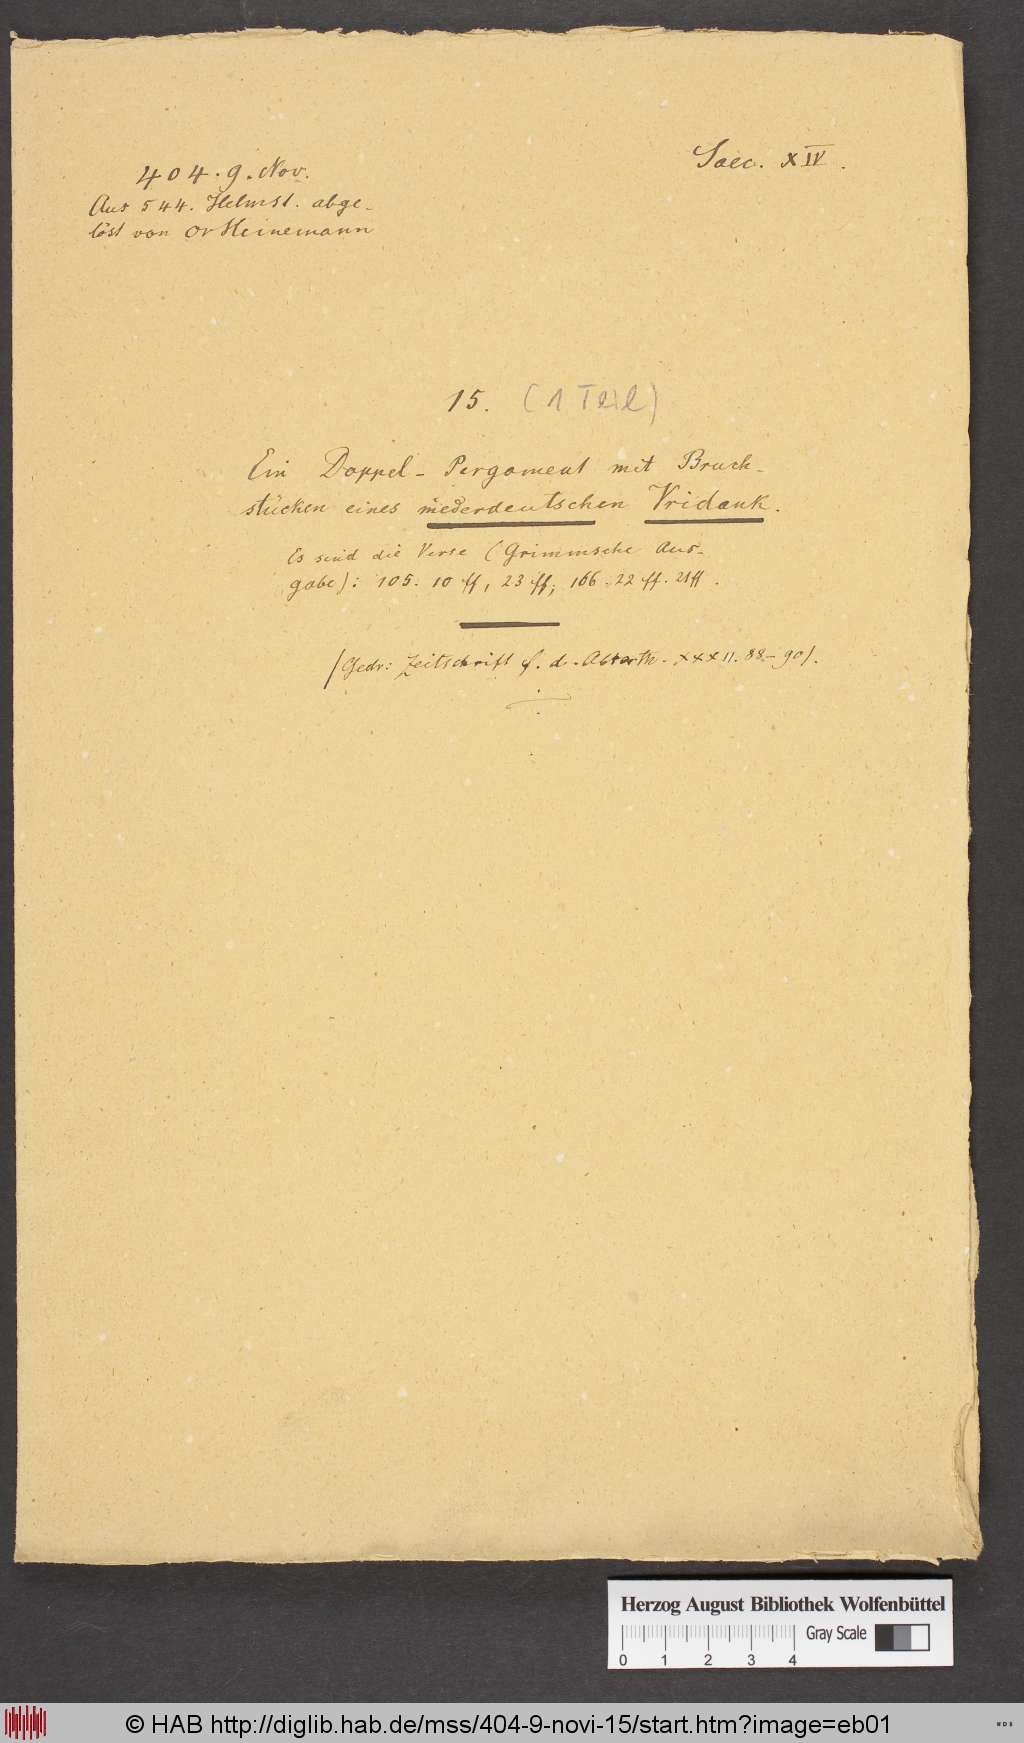 404. 9. Nov.
Saec. XIV.
Aus 544. Helmst. abge-
löst von Or Heinemann
15. (1 Teil)
Ein Doppel-Pergament mit Bruch-
stücken eines niederdeutschen Vridank.
Es sind die Verse (Grimmsche Aus-
gabe): 105. 10 ff, 23 ff; 106. 22 ff. 21 ff.
(Gedr: Zeitschrift f. d. Alterth. XXXII. 88-90).
Herzog August Bibliothek Wolfenbüttel
Gray Scale
0 1 2 3 4
© HAB http://diglib.hab.de/mss/404-9-novi-15/start.htm?image=eb01